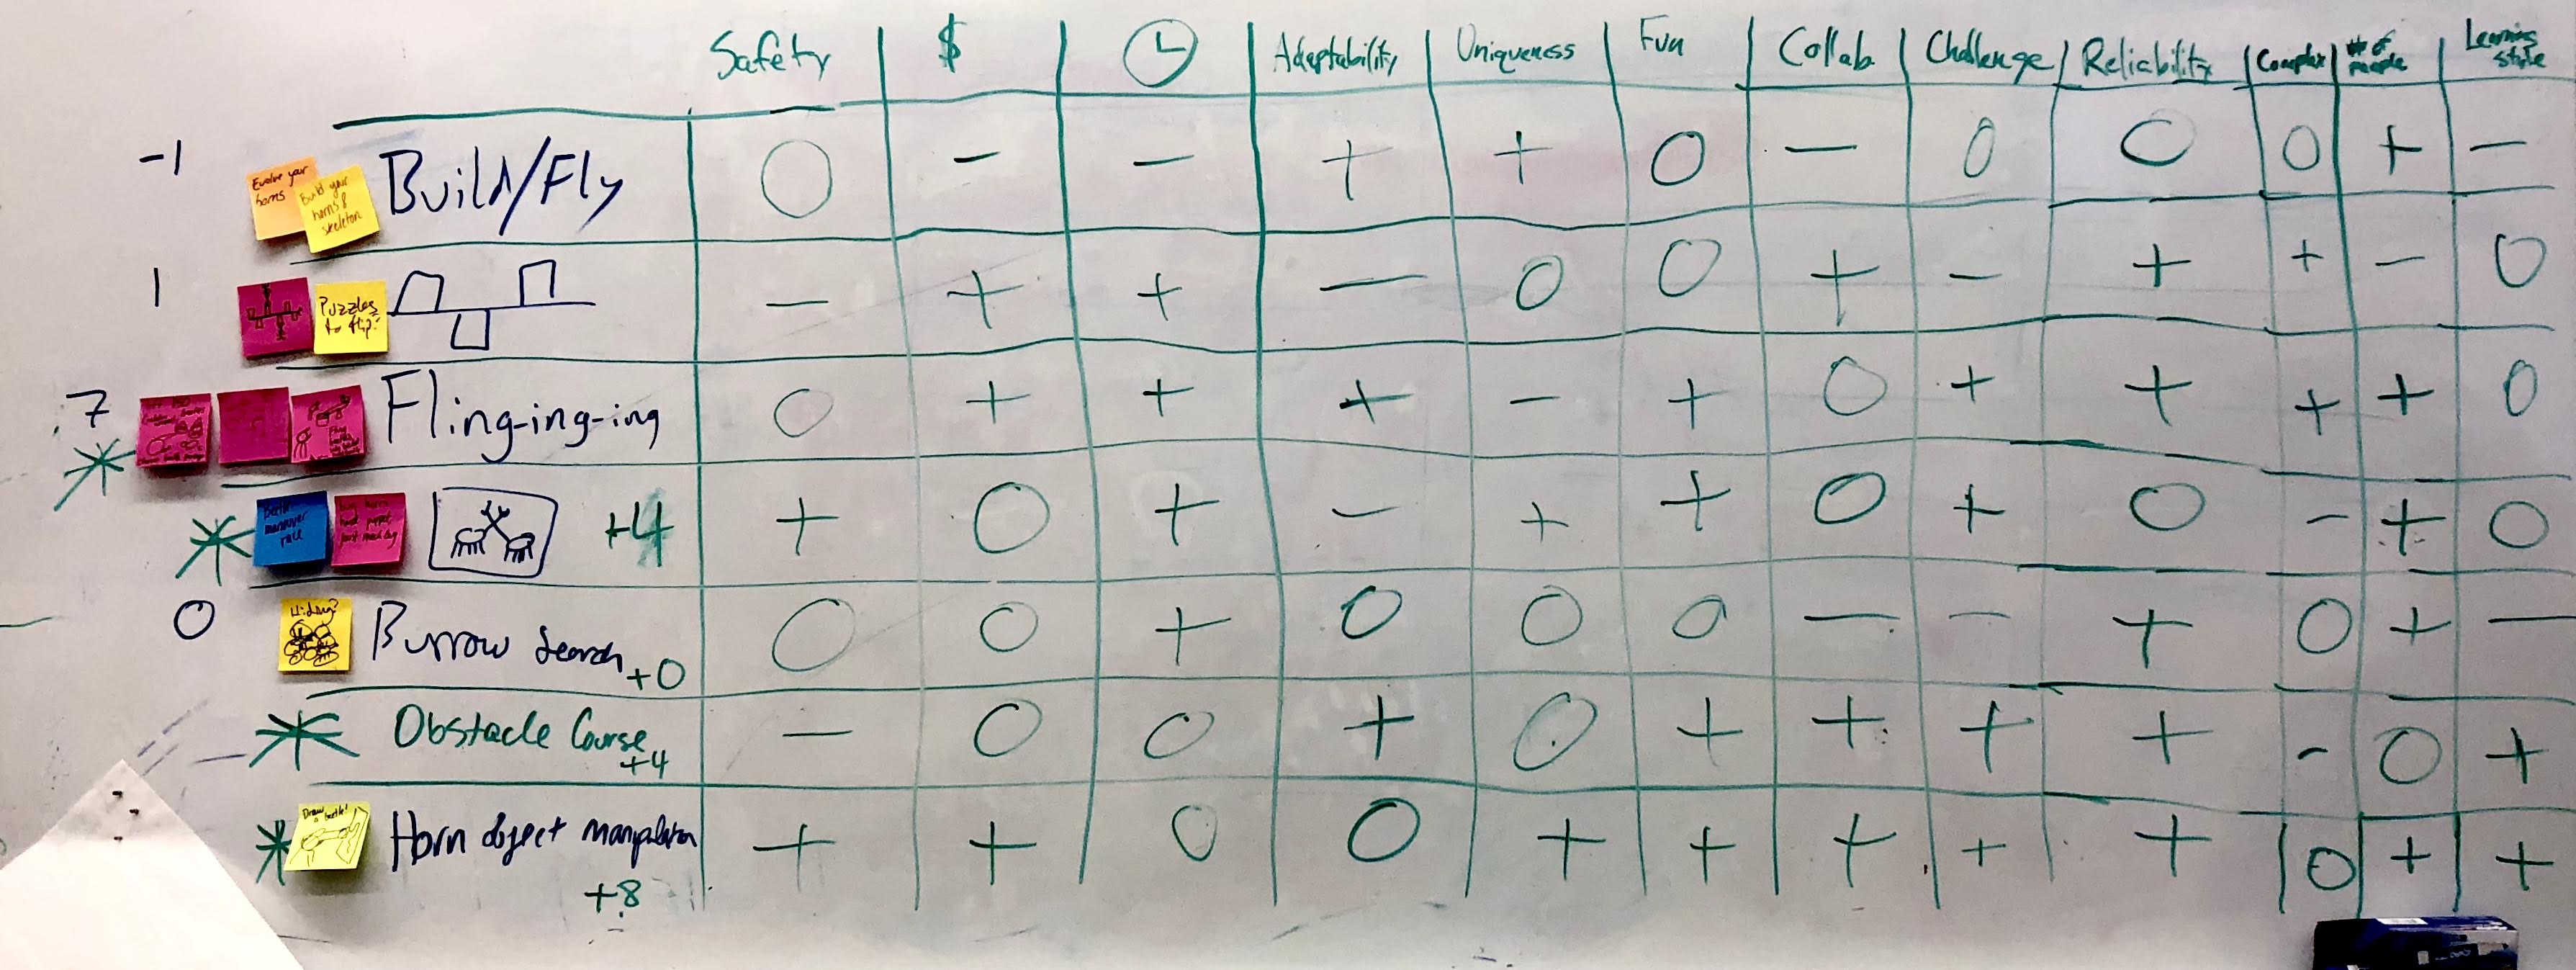 Safety $ Adaptability Uniqueness Fun Collab Challenge Reliability Complex # of people Learning style
-1 Evolve your horns Build your horns & skeleton Build/Fly O - - + + O - O O O + -
1 Puzzles to flip? - + + - O O + - + + - O
7 Fling-ing-ing O + + + - + O + + + + O
Beetle maneuver race +4 + O + - + + O + O - + O
O Hiding? Burrow Search +0 O O + O O O - - + O + -
Obstacle Course +4 - O O + O + + + + - O +
Draw a beetle! Horn object manipulation +8 + + O O + + + + + O + +